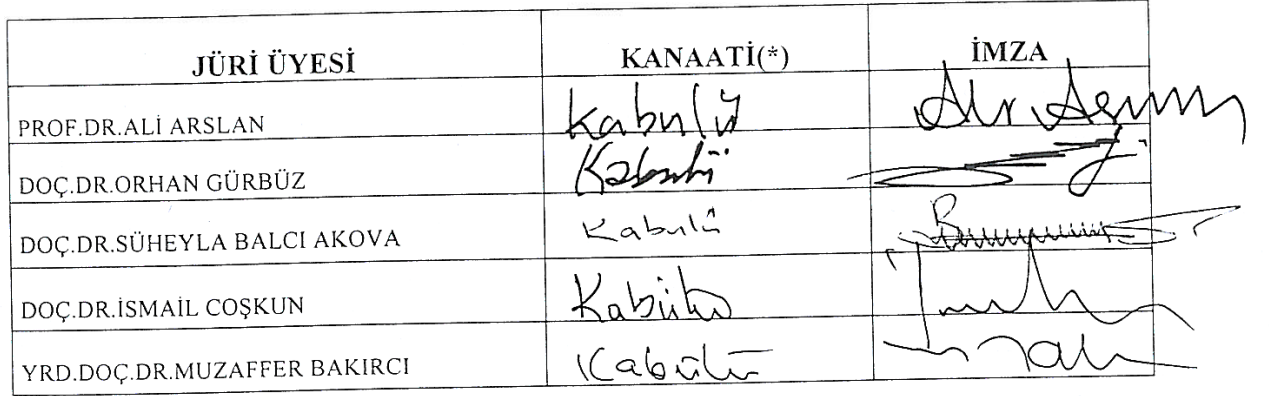 JÜRİ ÜYESİ KANAATİ(*) İMZA
PROF.DR.ALİ ARSLAN Kabulü
DOÇ.DR.ORHAN GÜRBÜZ Kabulü
DOÇ.DR.SÜHEYLA BALCI AKOVA Kabulü
DOÇ.DR.İSMAİL COŞKUN Kabülü
YRD.DOÇ.DR.MUZAFFER BAKIRCI Kabülü